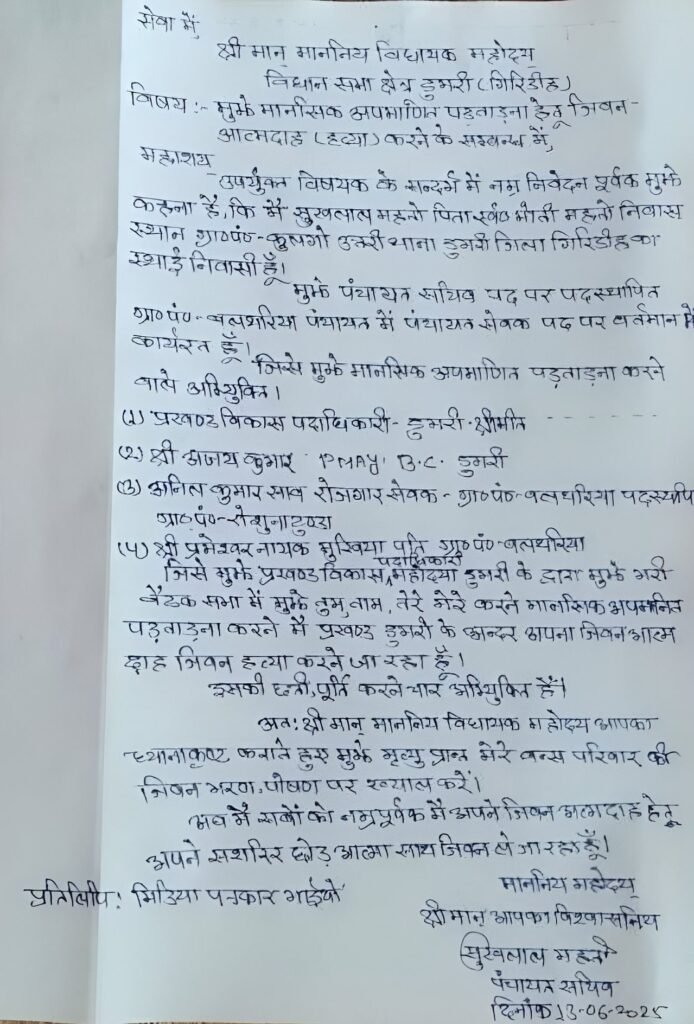 सेवा में,
श्री मान् माननिय विधायक महोदय्
विधान सभा क्षेत्र डुमरी (गिरिडीह)
विषय :- मुझे मानसिक अपमाणित पड़ताड़ना हेतू जिवन-
आत्मदाह (हत्या) करने के सम्बन्ध में,
महाशय,
उपर्युक्त विषयक के सन्दर्ग में नम्र निवेदन पूर्वक मुझे
कहना है, कि मैं सुखलाल महतो पिता स्व० मोती महतो निवास
स्थान ग्रा०पं०-कुलगो उत्तरी थाना डुमरी जिला गिरिडीह का
स्थाई निवासी हूँ।
मुझे पंचायत सचिव पद पर पदस्थापित
ग्रा० पं०- बलथरिया पंचायत में पंचायत सेवक पद पर वर्तमान में
कार्यरत हूँ।
जिसे मुझे मानसिक अपमाणित पड़ताड़ना करने
वाले अभियुक्ति।
(1) प्रखण्ड विकास पदाधिकारी- डुमरी-श्रीमति
(2) श्री अजय कुमार PMAY B.C. डुमरी
(3) अनिल कुमार साव रोजगार सेवक - ग्रा०पं०-बलथरिया पदस्थापि
ग्रा०पं०-
(4) श्री प्रमेश्वर नायक मुखिया पति ग्रा० पं०-बलथरिया
जिसे मुझे प्रखण्ड विकास पदाधिकारी महोदया डुमरी के द्वारा मुझे भरी
बैठक सभा में मुझे तुम, नाम, तेरे मेरे करने मानसिक अपमानित
पड़ताड़ना करने मैं प्रखण्ड डुमरी के अन्दर अपना जिवन आत्म
दाह जिवन हत्या करने जा रहा हूँ।
इसकी छती, पूर्ति करने चार अभियुक्ति हैं।
अत: श्री मान् माननिय विधायक महोदय आपका
ध्यानाकृष्ट कराते हुए मुझे मृत्यु प्रान्त मेरे वन्स परिवार की
जिवन भरण, पोषण पर ख्याल करें।
अब मैं सबों को नम्रपूर्वक मैं अपने जिवन आत्मदाह हेतू
अपने सशरिर छोड़ आत्मा साथ जिवन ले जा रहा हूँ।
माननिय महोदय्
प्रतिलिपि : मिडिया पत्रकार भाईयों
श्री मान् आपका विश्वासनिय
सुखलाल महतो
पंचायत सचिव
दिनांक 13-06-2025